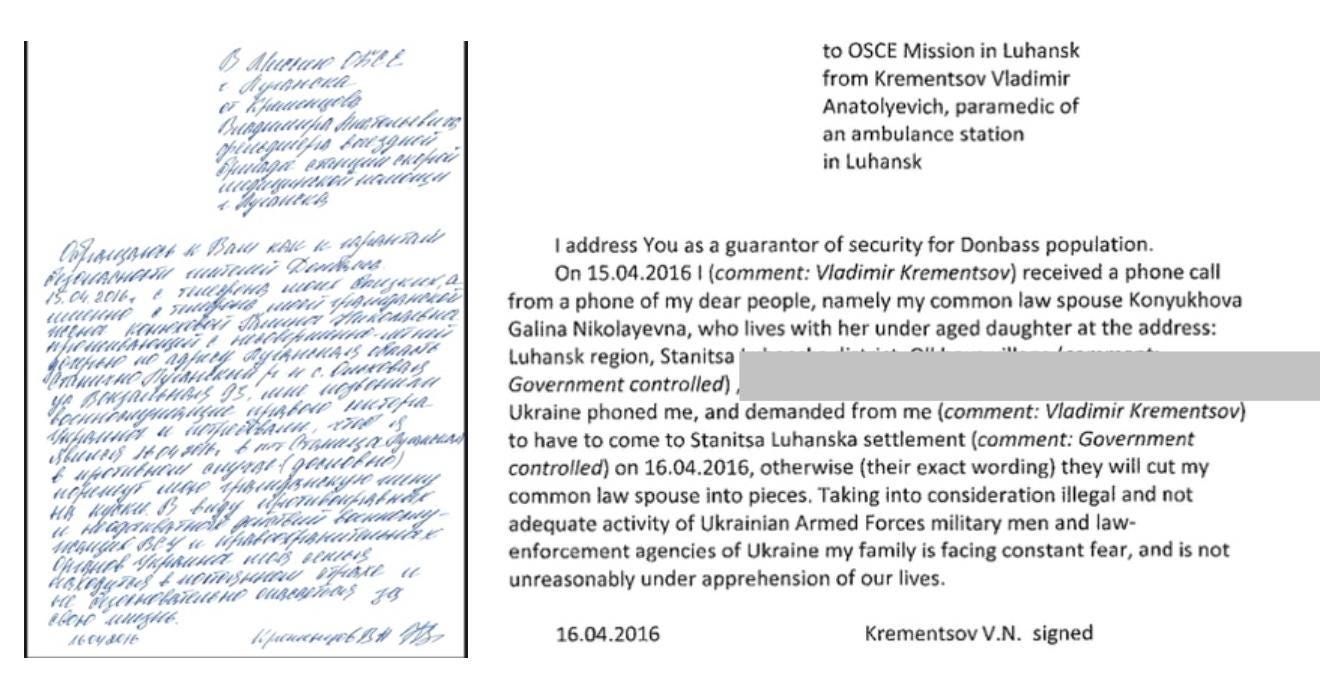 В Миссию ОБСЕ
г. Луганска
от Кременцова
Владимира Анатольевича
фельдшера выездной
бригады станции скорой
медицинской помощи
г. Луганска
Обращаюсь к Вам как к гарантам
безопасности жителей Донбасса.
15.04.2016г. с телефона моих близких, а
именно с телефона моей гражданской
жены Конюховой Галины Николаевны
проживающей с несовершеннолетней
дочерью по адресу Луганская область
Станично Луганский р-н [address omitted]
[address omitted] мне позвонили
военнослужащие правого сектора
Украины и потребовали, чтоб я
явился 16.04.2016г. в пгт Станица Луганская
в противном случае (дословно)
порежут мою гражданскую жену
на куски. В виду противоправных
и неадекватных действий военнослу-
жащих ВСУ и правоохранительных
органов Украины моя семья
находится в постоянном страхе и
не безосновательно опасается за
свою жизнь.
16.04.2016 Кременцов В.Н.
to OSCE Mission in Luhansk
from Krementsov Vladimir
Anatolyevich, paramedic of
an ambulance station
in Luhansk
I address You as a guarantor of security for Donbass population.
On 15.04.2016 I (comment: Vladimir Krementsov) received a phone call
from a phone of my dear people, namely my common law spouse Konyukhova
Galina Nikolayevna, who lives with her under aged daughter at the address:
Luhansk region, Stanitsa
Government controlled) ,
Ukraine phoned me, and demanded from me (comment: Vladimir Krementsov)
to have to come to Stanitsa Luhanska settlement (comment: Government
controlled) on 16.04.2016, otherwise (their exact wording) they will cut my
common law spouse into pieces. Taking into consideration illegal and not
adequate activity of Ukrainian Armed Forces military men and law-
enforcement agencies of Ukraine my family is facing constant fear, and is not
unreasonably under apprehension of our lives.
16.04.2016 Krementsov V.N. signed